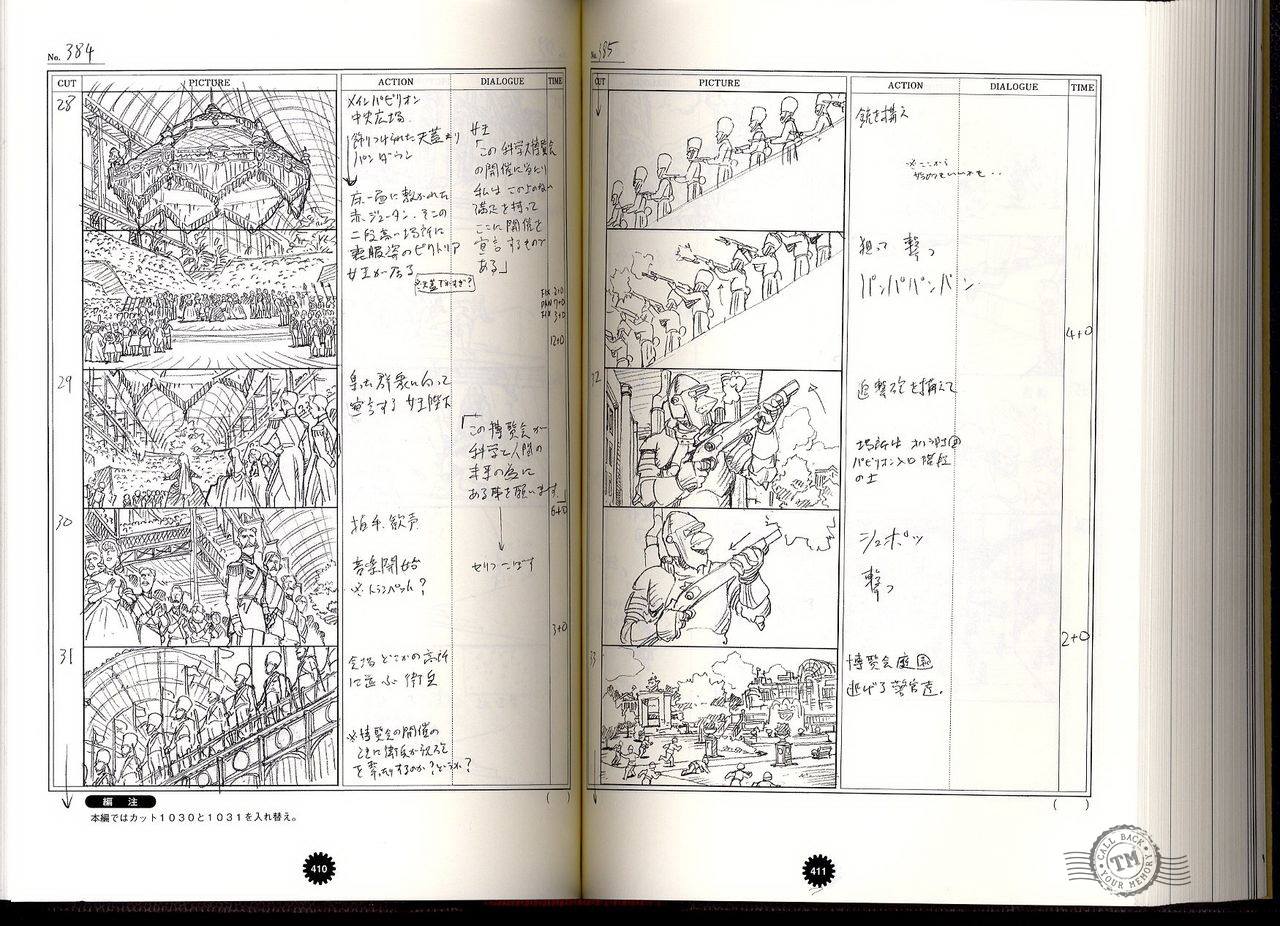 No. 384
CUT
PICTURE
ACTION
DIALOGUE
TIME
28
メインパビリオン
中央広場.
飾りつけられた天蓋より
パンダウン
床一面に敷かれた
赤ジュータン. その
二段高い場所に
喪服姿のビクトリア
女王が居る
女王
「この科学大博覧会
の開催に当たり
私は この上のない
満足を持って
ここに開催を
宣言するもので
ある」
FIX 2+0
PAN 7+0
FIX 3+0
12+0
29
集った群衆に向って
宣言する 女王陛下
「この博覧会が
科学と人間の
未来の為に
ある事を願います」
6+0
30
拍手. 歓声
音楽開始
※トランペット?
セリフこぼす
3+0
31
会場 どこかの高所
に並ぶ 衛兵
※博覧会の開催の
ときに衛兵が祝砲
を撃ったりするのか?
編 注
本編ではカット1030と1031を入れ替え。
( )
410
No. 385
CUT
PICTURE
ACTION
DIALOGUE
TIME
銃を構え
※ここから
狙って 撃つ
パンパパンパン
4+0
32
追撃砲を構えて
パビリオン入口 階段
の上
シュポッ
撃つ
2+0
33
博覧会庭園
逃げる警官達.
( )
411
CALL BACK
TM
YOUR MEMORY